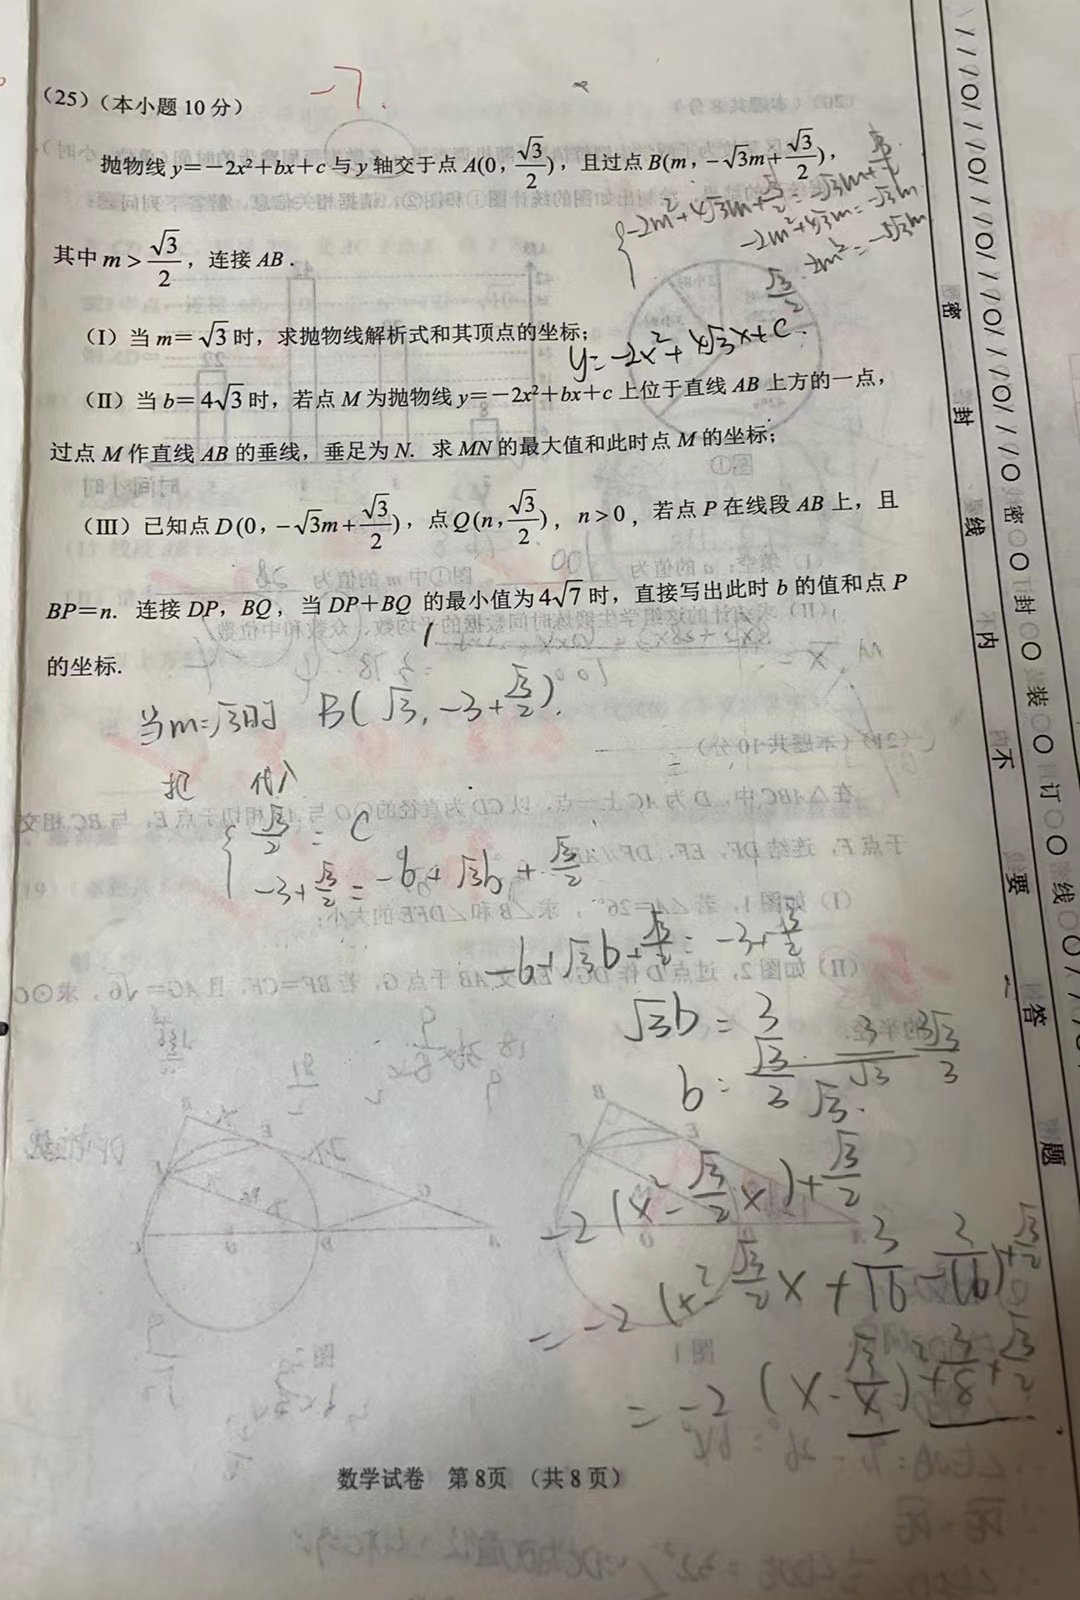 -7.
（25）（本小题 10 分）
抛物线 y=−2x²+bx+c 与 y 轴交于点 A(0, √3/2)，且过点 B(m, −√3m+√3/2)，
其中 m>√3/2，连接 AB．
（I）当 m=√3 时，求抛物线解析式和其顶点的坐标；
（II）当 b=4√3 时，若点 M 为抛物线 y=−2x²+bx+c 上位于直线 AB 上方的一点，
过点 M 作直线 AB 的垂线，垂足为 N. 求 MN 的最大值和此时点 M 的坐标；
（III）已知点 D(0, −√3m+√3/2)，点 Q(n, √3/2)，n>0，若点 P 在线段 AB 上，且
BP=n. 连接 DP，BQ，当 DP+BQ 的最小值为 4√7 时，直接写出此时 b 的值和点 P
的坐标.
-2m²+4√3m=-√3m
y=-2x²+4√3x+c.
当m=√3时 B(√3, -3+√3/2).
把 代入
√3/2=c
-3+√3/2=-6+√3b+√3/2
-6+√3b+√3/2=-3+√3/2
√3b=3
b= √3.
-2(x²-√3/2x)+√3/2
=-2(x²-√3/2x+3/16-3/16)+√3/2
=-2(x-√3/4)²+3/8+√3/2
数学试卷 第8页 （共 8 页）
密
封
线
内
不
要
答
题
密
封
装
订
线